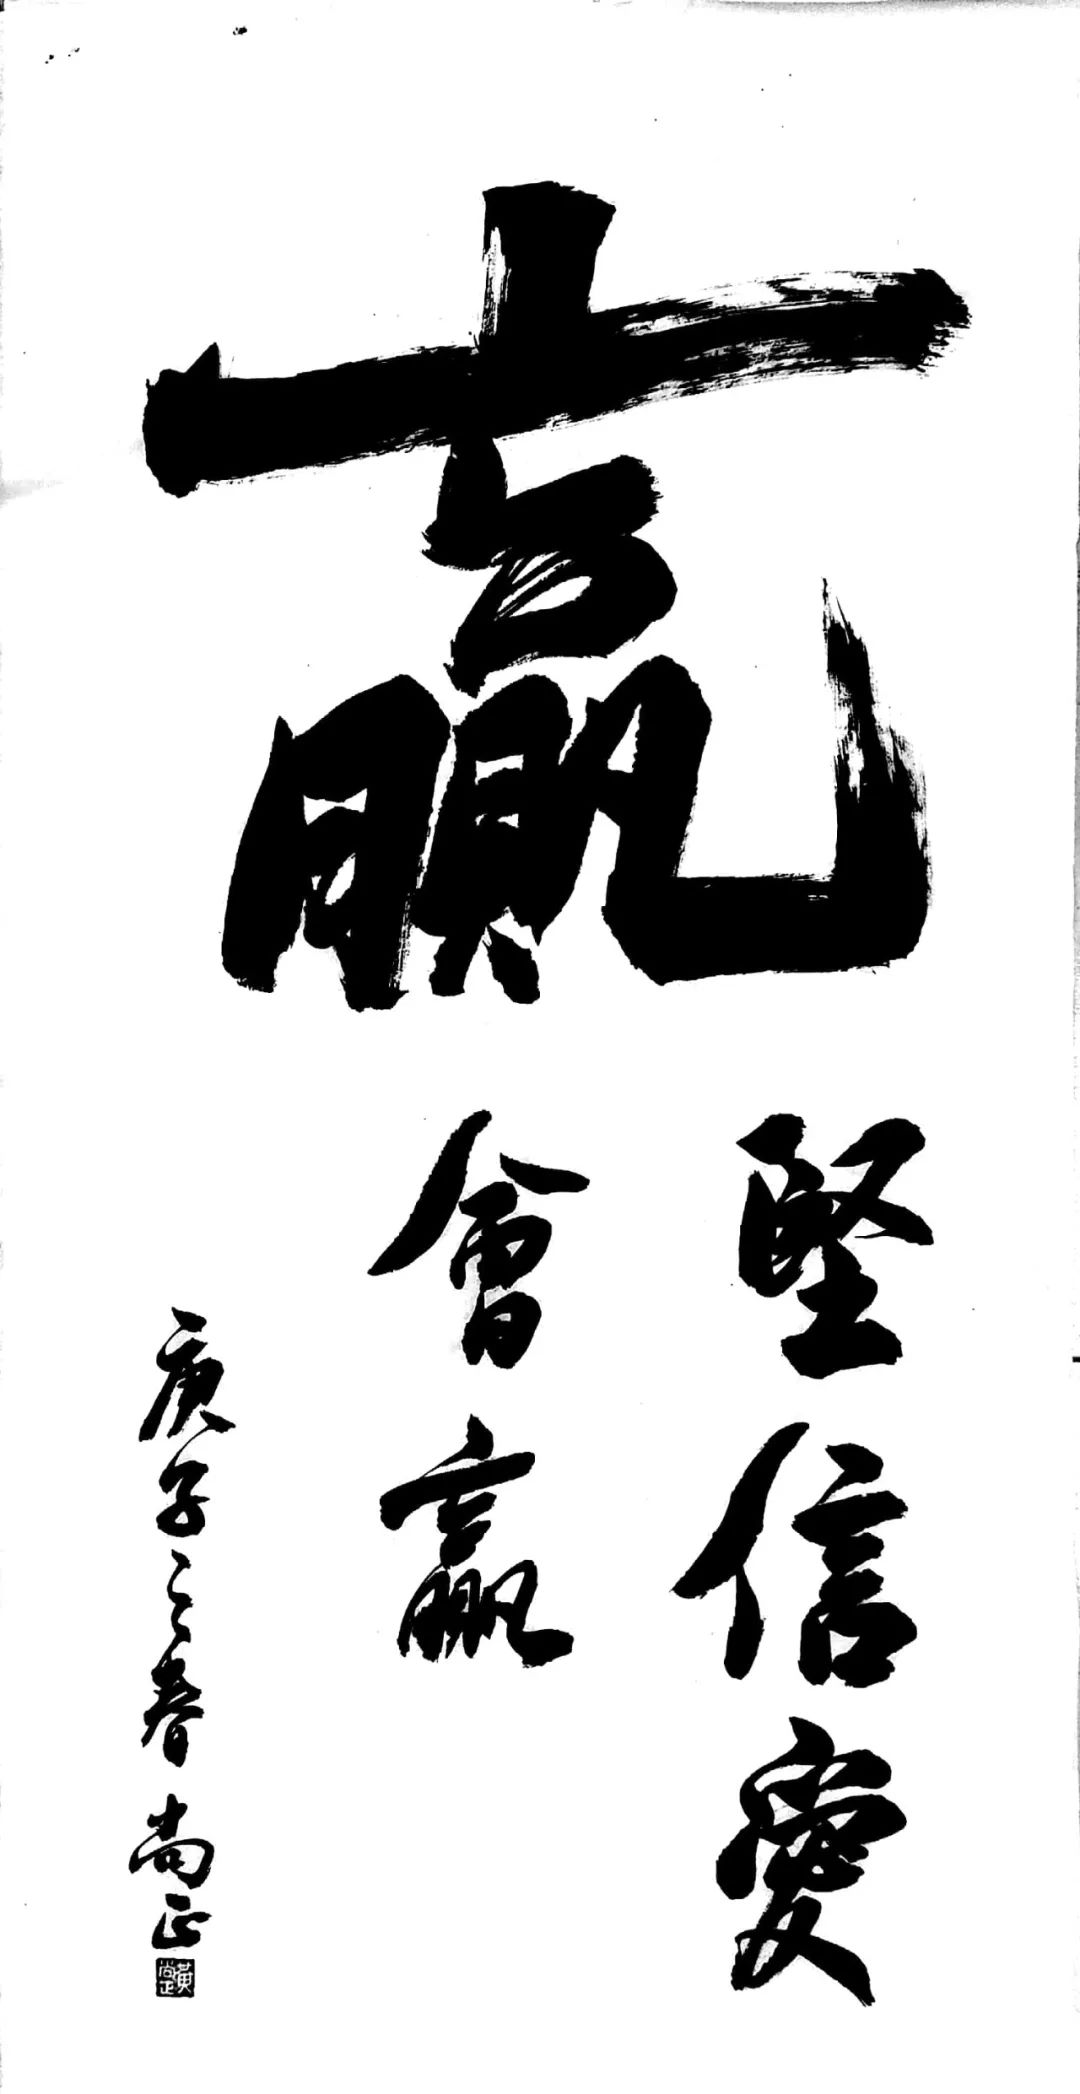 赢
堅信愛
會赢
庚子之春 尚正
黃尚正